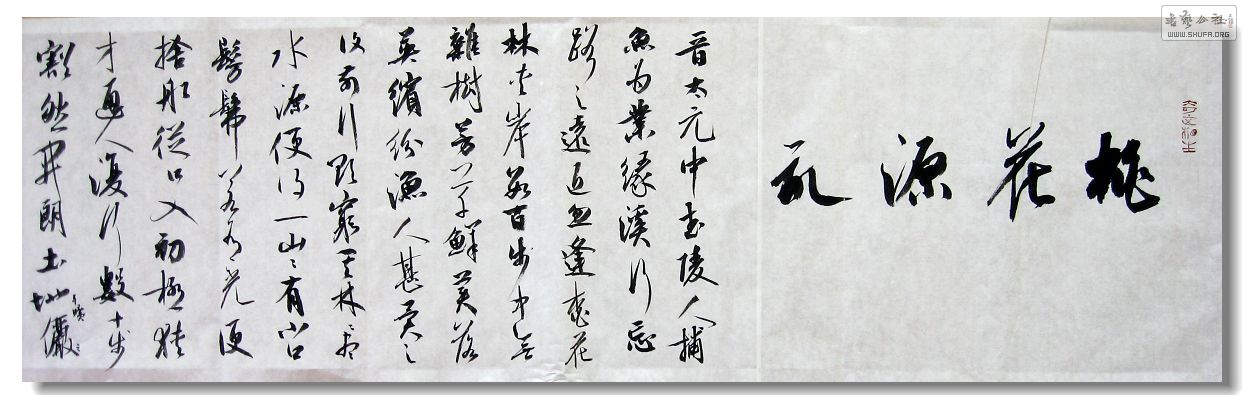 書藝公社
WWW.SHUFA.ORG
桃花源記
晉太元中武陵人捕
魚为業緣溪行忘
路之遠近忽逢桃花
林夹岸數百步中無
雜樹芳草鮮美落
英繽紛漁人甚異之
復前行欲窮其林〻尽
水源便得一山〻有小口
髣髴若有光便
捨船從口入初極狭
才通人復行數十步
豁然開朗土地平曠儼